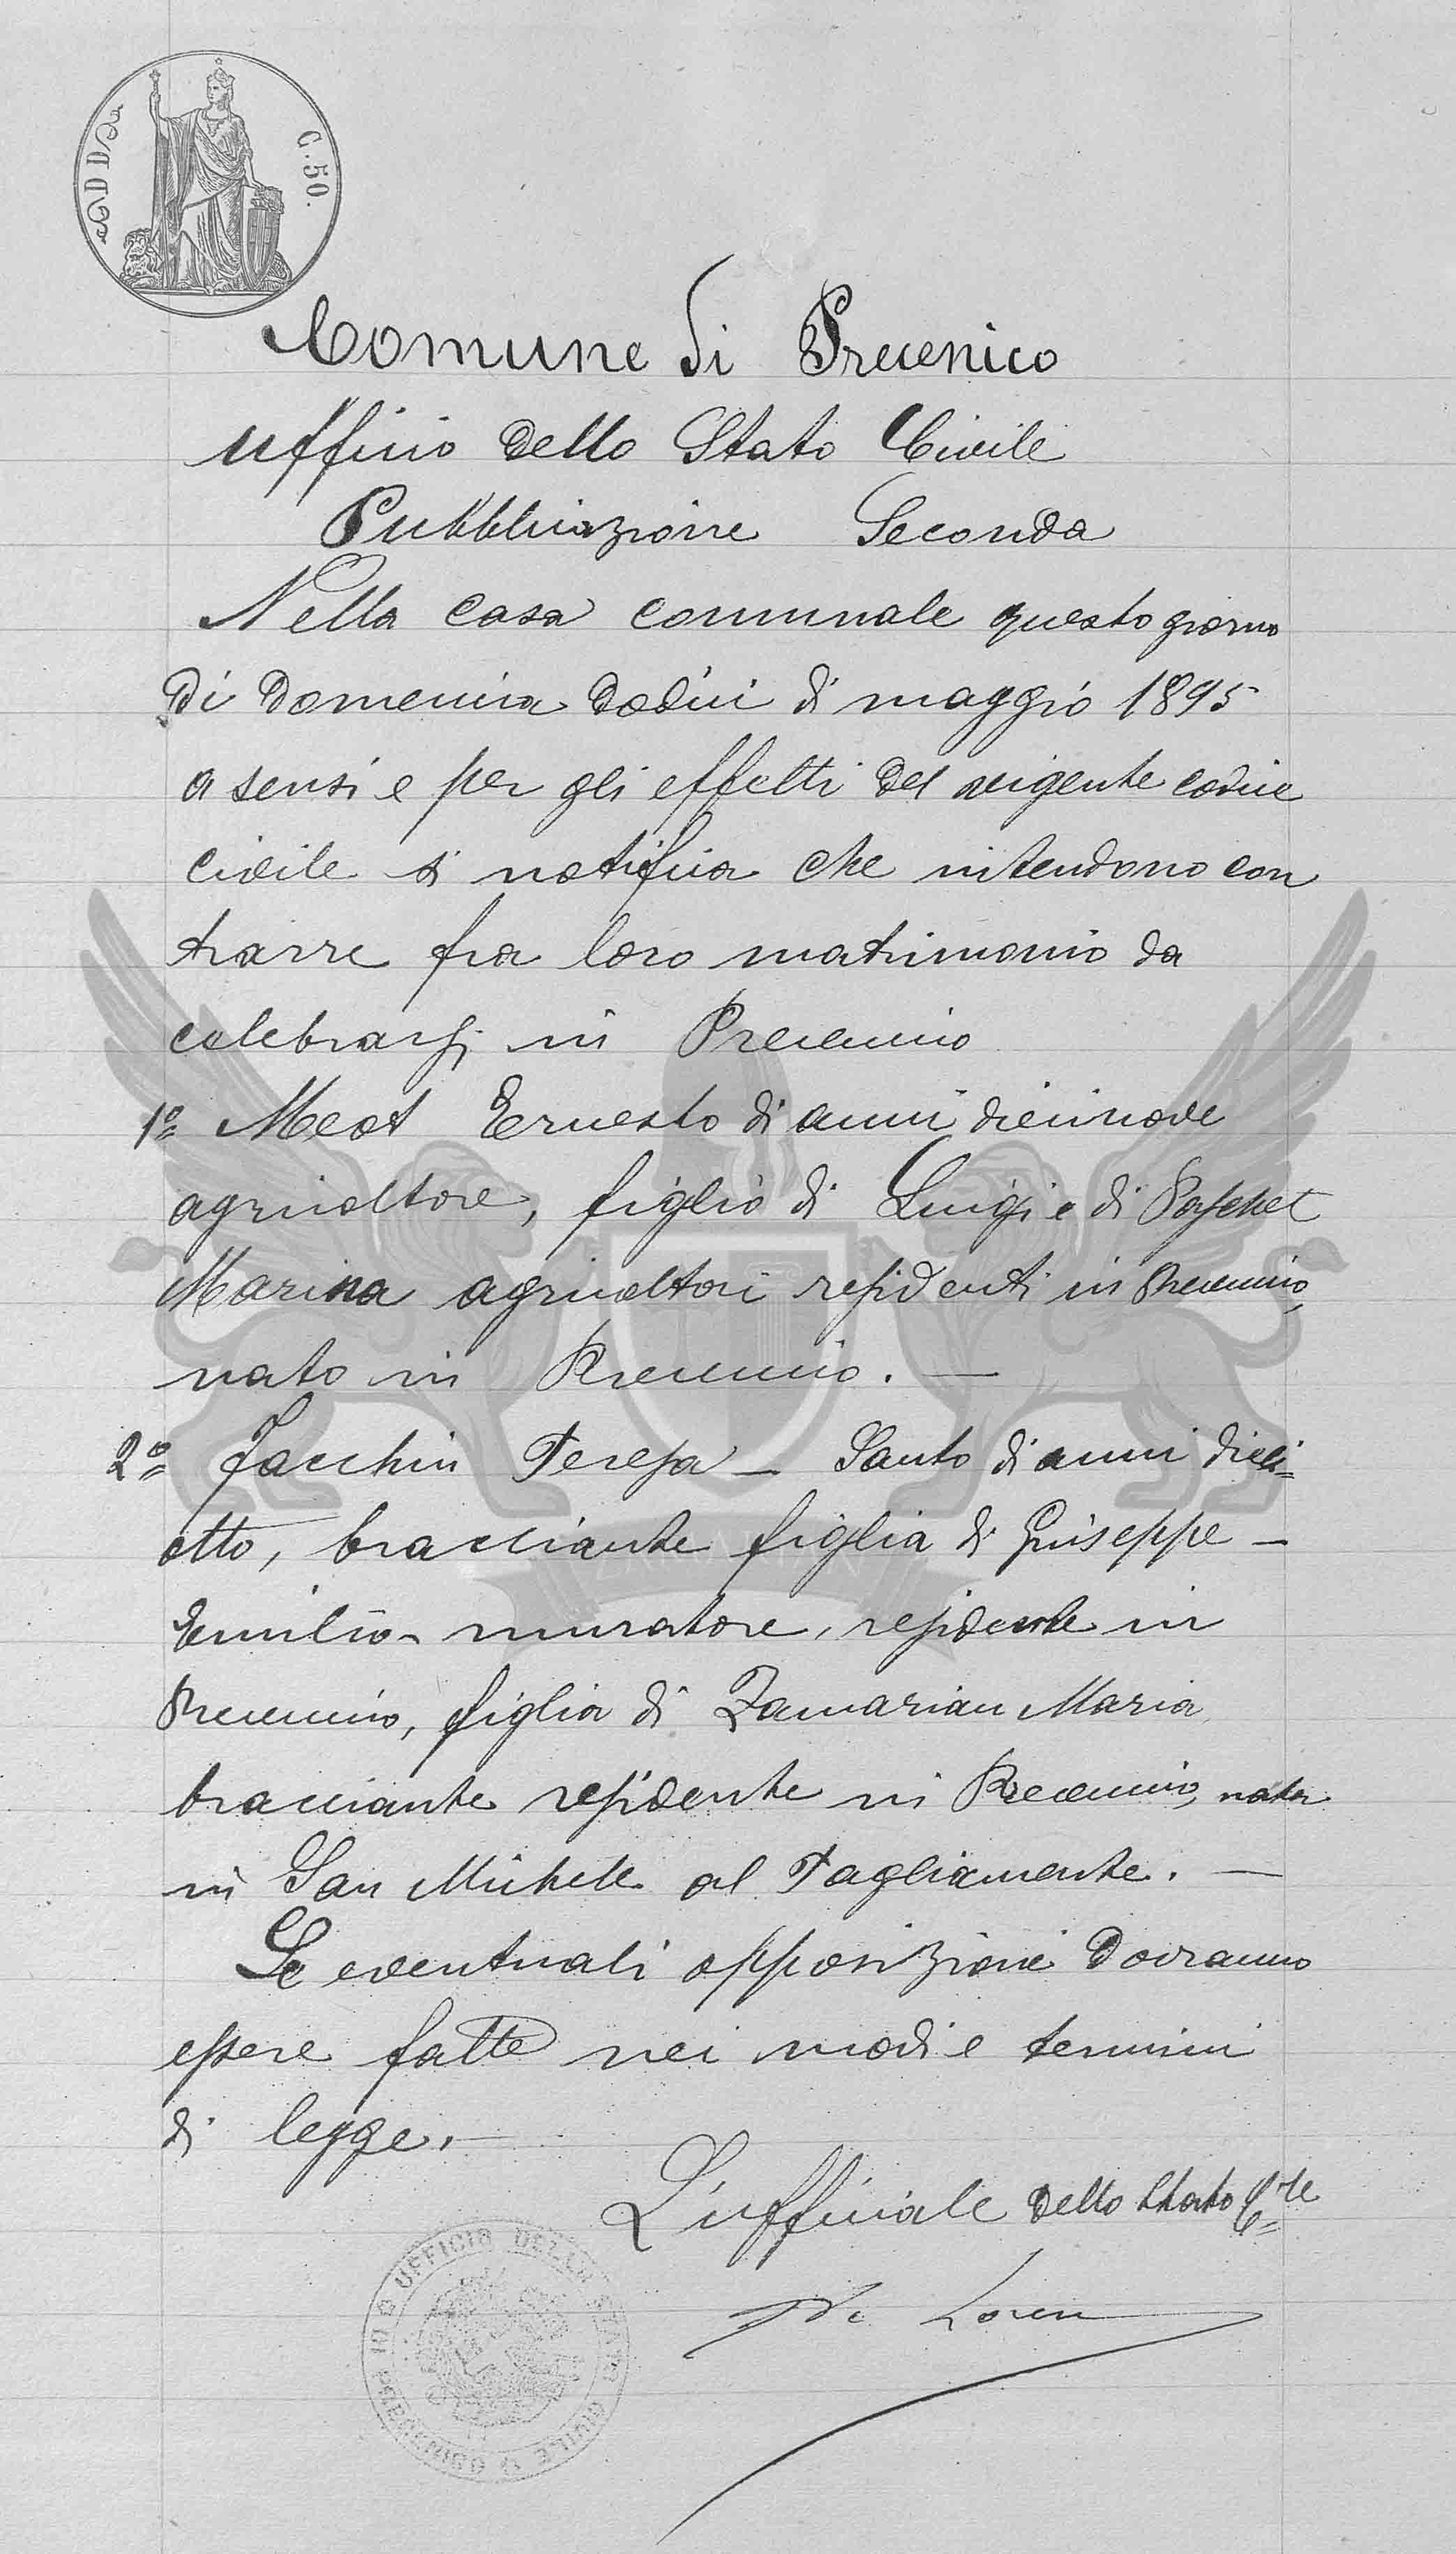 C. 50.
Comune di Precenico
Ufficio dello Stato Civile
Pubblicazione Seconda
Nella casa comunale questo giorno
di Domenica dodici di maggio 1895
a sensi e per gli effetti del vigente codice
civile si notifica che intendono con
trarre fra loro matrimonio da
celebrarsi in Precenico
1º Meot Ernesto di anni diecinove
agricoltore, figlio di Luigi e di Paschet
Marina agricoltori residenti in Precenico,
nato in Precenico. —
2º Jacchin Teresa - Santo di anni dieci=
otto, bracciante figlia di Giuseppe -
Emilio - muratore, residente in
Precenico, figlia di Zamarian Maria
bracciante residente in Precenico, nata
in San Michele al Tagliamento. —
Le eventuali opposizioni dovranno
essere fatte nei modi e termini
di legge. —
L'ufficiale dello Stato C.le
De
UFFICIO DELLO STATO CIVILE
PRECENICO